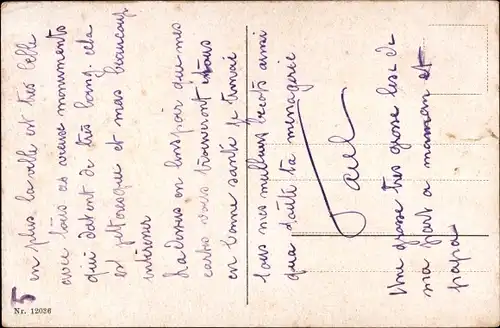 5
en plus la ville est très belle
avec tous ces vieux monuments
qui datent de très long. cela
est pitoresque et mas beaucoup
interieur
La dessus en espoir que mes
cartes vous trouveront tous
en bonne santé je t'envoi
tous mes meilleurs bécots ainsi
que d'aute ta ménagerie
Paul
Une grosse très grosse bise de
ma part a maman et
papa
Nr. 12026